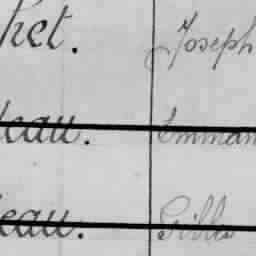 ket. Joseph
eau. Emman
eau. Gille